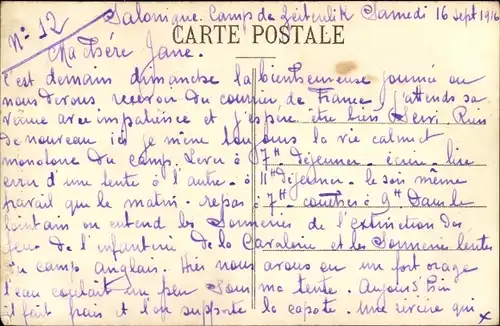 N° 12
Salonique. Camp de Zeitenlik Samedi 16 sept 1916
CARTE POSTALE
Ma chère Jane.
C'est demain dimanche la bienheureuse journée ou
nous devons recevoir du courrier de France. J'attends sa
venue avec impatience et j'espère être bien servi. Rien
de nouveau ici je mène toujours la vie calme et
monotone du camp. Lever à 7H. déjeuner. écrire. lire
d'une tente à l'autre. à 11H déjeuner. le soir même
travail que le matin. repas à 7H. coucher à 9H. Dans le
lointain on entend les Sonneries de l'extinction des
feux de l'infanterie de la Cavalerie et les Sonneries lentes
du camp anglais. Hier nous avons eu un fort orage
l'eau coulait un peu sous ma tente. Aujourd'hui
il fait frais et l'on supporte la capote. Une rivière qui
x